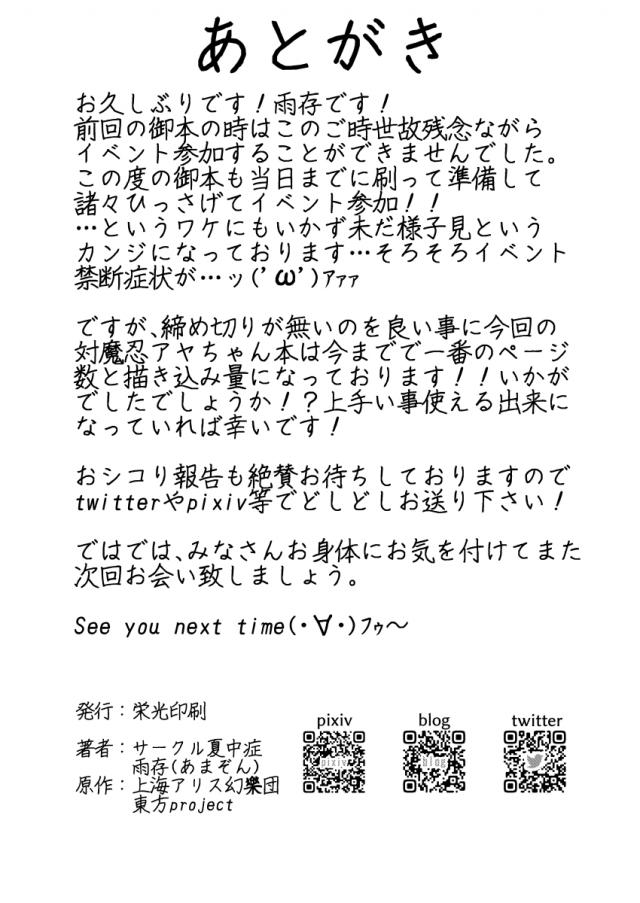 あとがき
お久しぶりです！雨存です！
前回の御本の時はこのご時世故残念ながら
イベント参加することができませんでした。
この度の御本も当日までに刷って準備して
諸々ひっさげてイベント参加！！
…というワケにもいかず未だ様子見という
カンジになっております…そろそろイベント
禁断症状が…ッ(’ω’)ｱｧｧ
ですが、締め切りが無いのを良い事に今回の
対魔忍アヤちゃん本は今までで一番のページ
数と描き込み量になっております！！いかが
でしたでしょうか！？上手い事使える出来に
なっていれば幸いです！
おシコり報告も絶賛お待ちしておりますので
twitterやpixiv等でどしどしお送り下さい！
ではでは、みなさんお身体にお気を付けてまた
次回お会い致しましょう。
See you next time(・∀・)ﾌｩ～
発行：栄光印刷
著者：サークル夏中症
雨存(あまぞん)
原作：上海アリス幻樂団
東方project
pixiv
blog
twitter
pixiv
blog